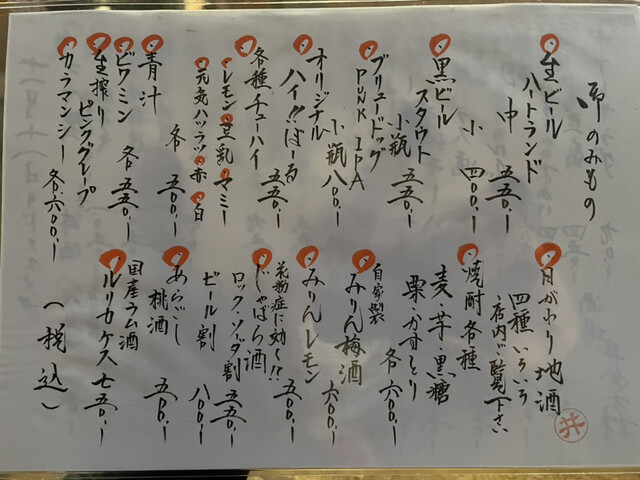 御のみもの
生ビール
ハートランド
中 五五〇、ー
小 四〇〇、ー
黒ビール
スタウト
小瓶 五五〇、ー
ブリュードッグ
PUNK IPA
小瓶 八〇〇、ー
オリジナル
ハイ!!ぼーる
五五〇、ー
各種チューハイ
・レモン・豆乳・マミー
・元気ハツラツ・赤・白
各 五〇〇、ー
青汁
ビワミン
各 五五〇、ー
生搾り
ピンクグレープ
カラマンシー 各、六〇〇、ー
日がわり地酒
四種いろいろ
店内ご覧下さい
焼酎各種
麦・芋・黒糖
栗・かすとり
各 六〇〇、ー
自家製
みりん梅酒
六〇〇、ー
みりんレモン
五〇〇、ー
花粉症に効く!?
じゃばら酒
ロック・ソーダ割
五五〇、ー
ビール割 八〇〇、ー
あらごし
桃酒 五〇〇、ー
国産ラム酒
ルリカケス 七五〇、ー
(税込)